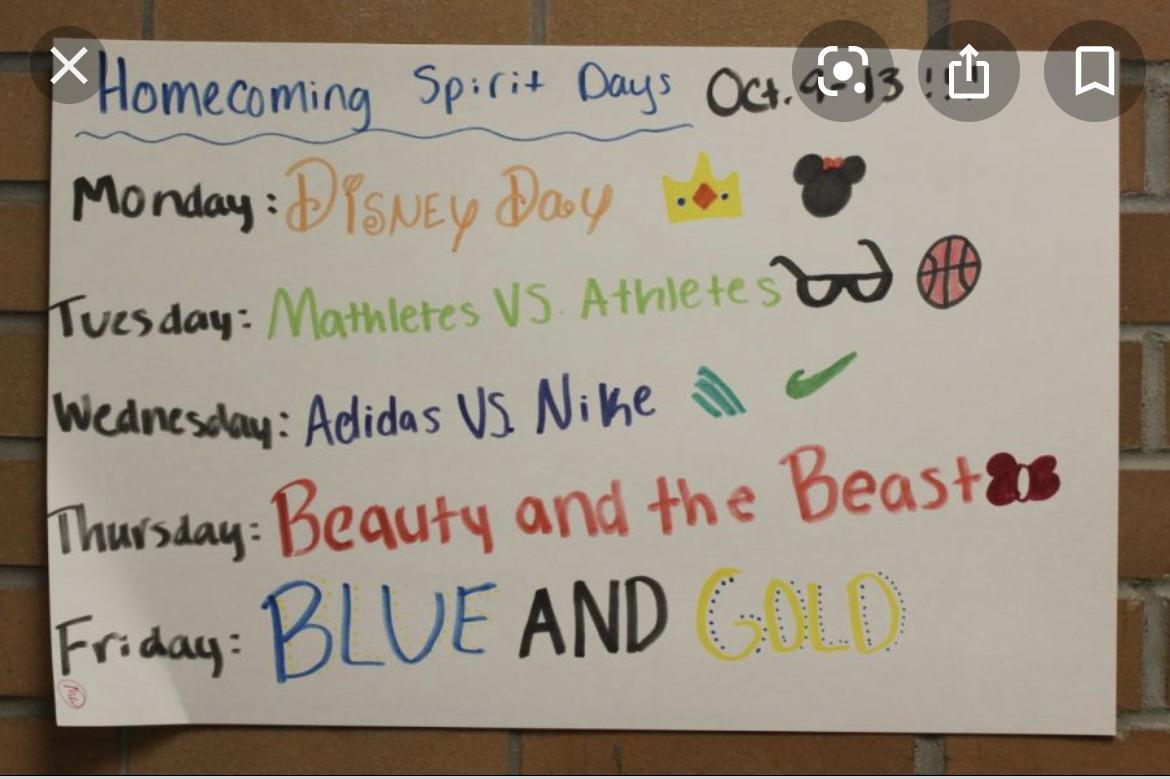 Homecoming Spirit Days Oct. 9-13 !!!
Monday: Disney Day
Tuesday: Mathletes VS. Athletes
Wednesday: Adidas VS. Nike
Thursday: Beauty and the Beast
Friday: BLUE AND GOLD